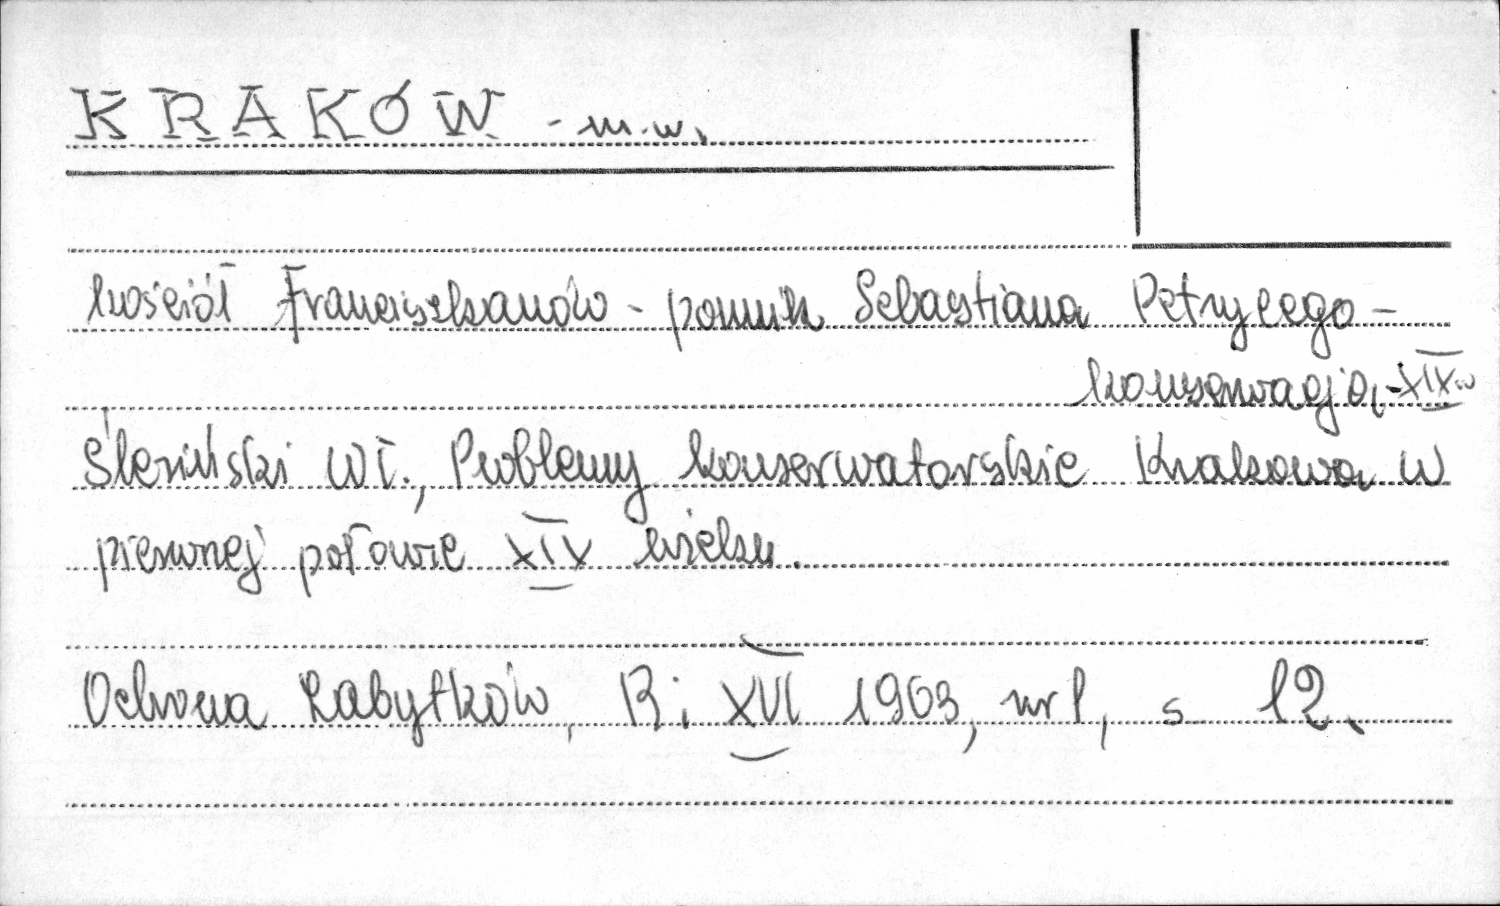 KRAKÓW - m.w.
kościół Franciszkanów - pomnik Sebastiana Petrycego -
konserwacja - XIX w
Ślesiński Wł., Problemy konserwatorskie Krakowa w
pierwszej połowie XIX wieku.
Ochrona Zabytków, R: XVI 1963, nr 1, s 12.